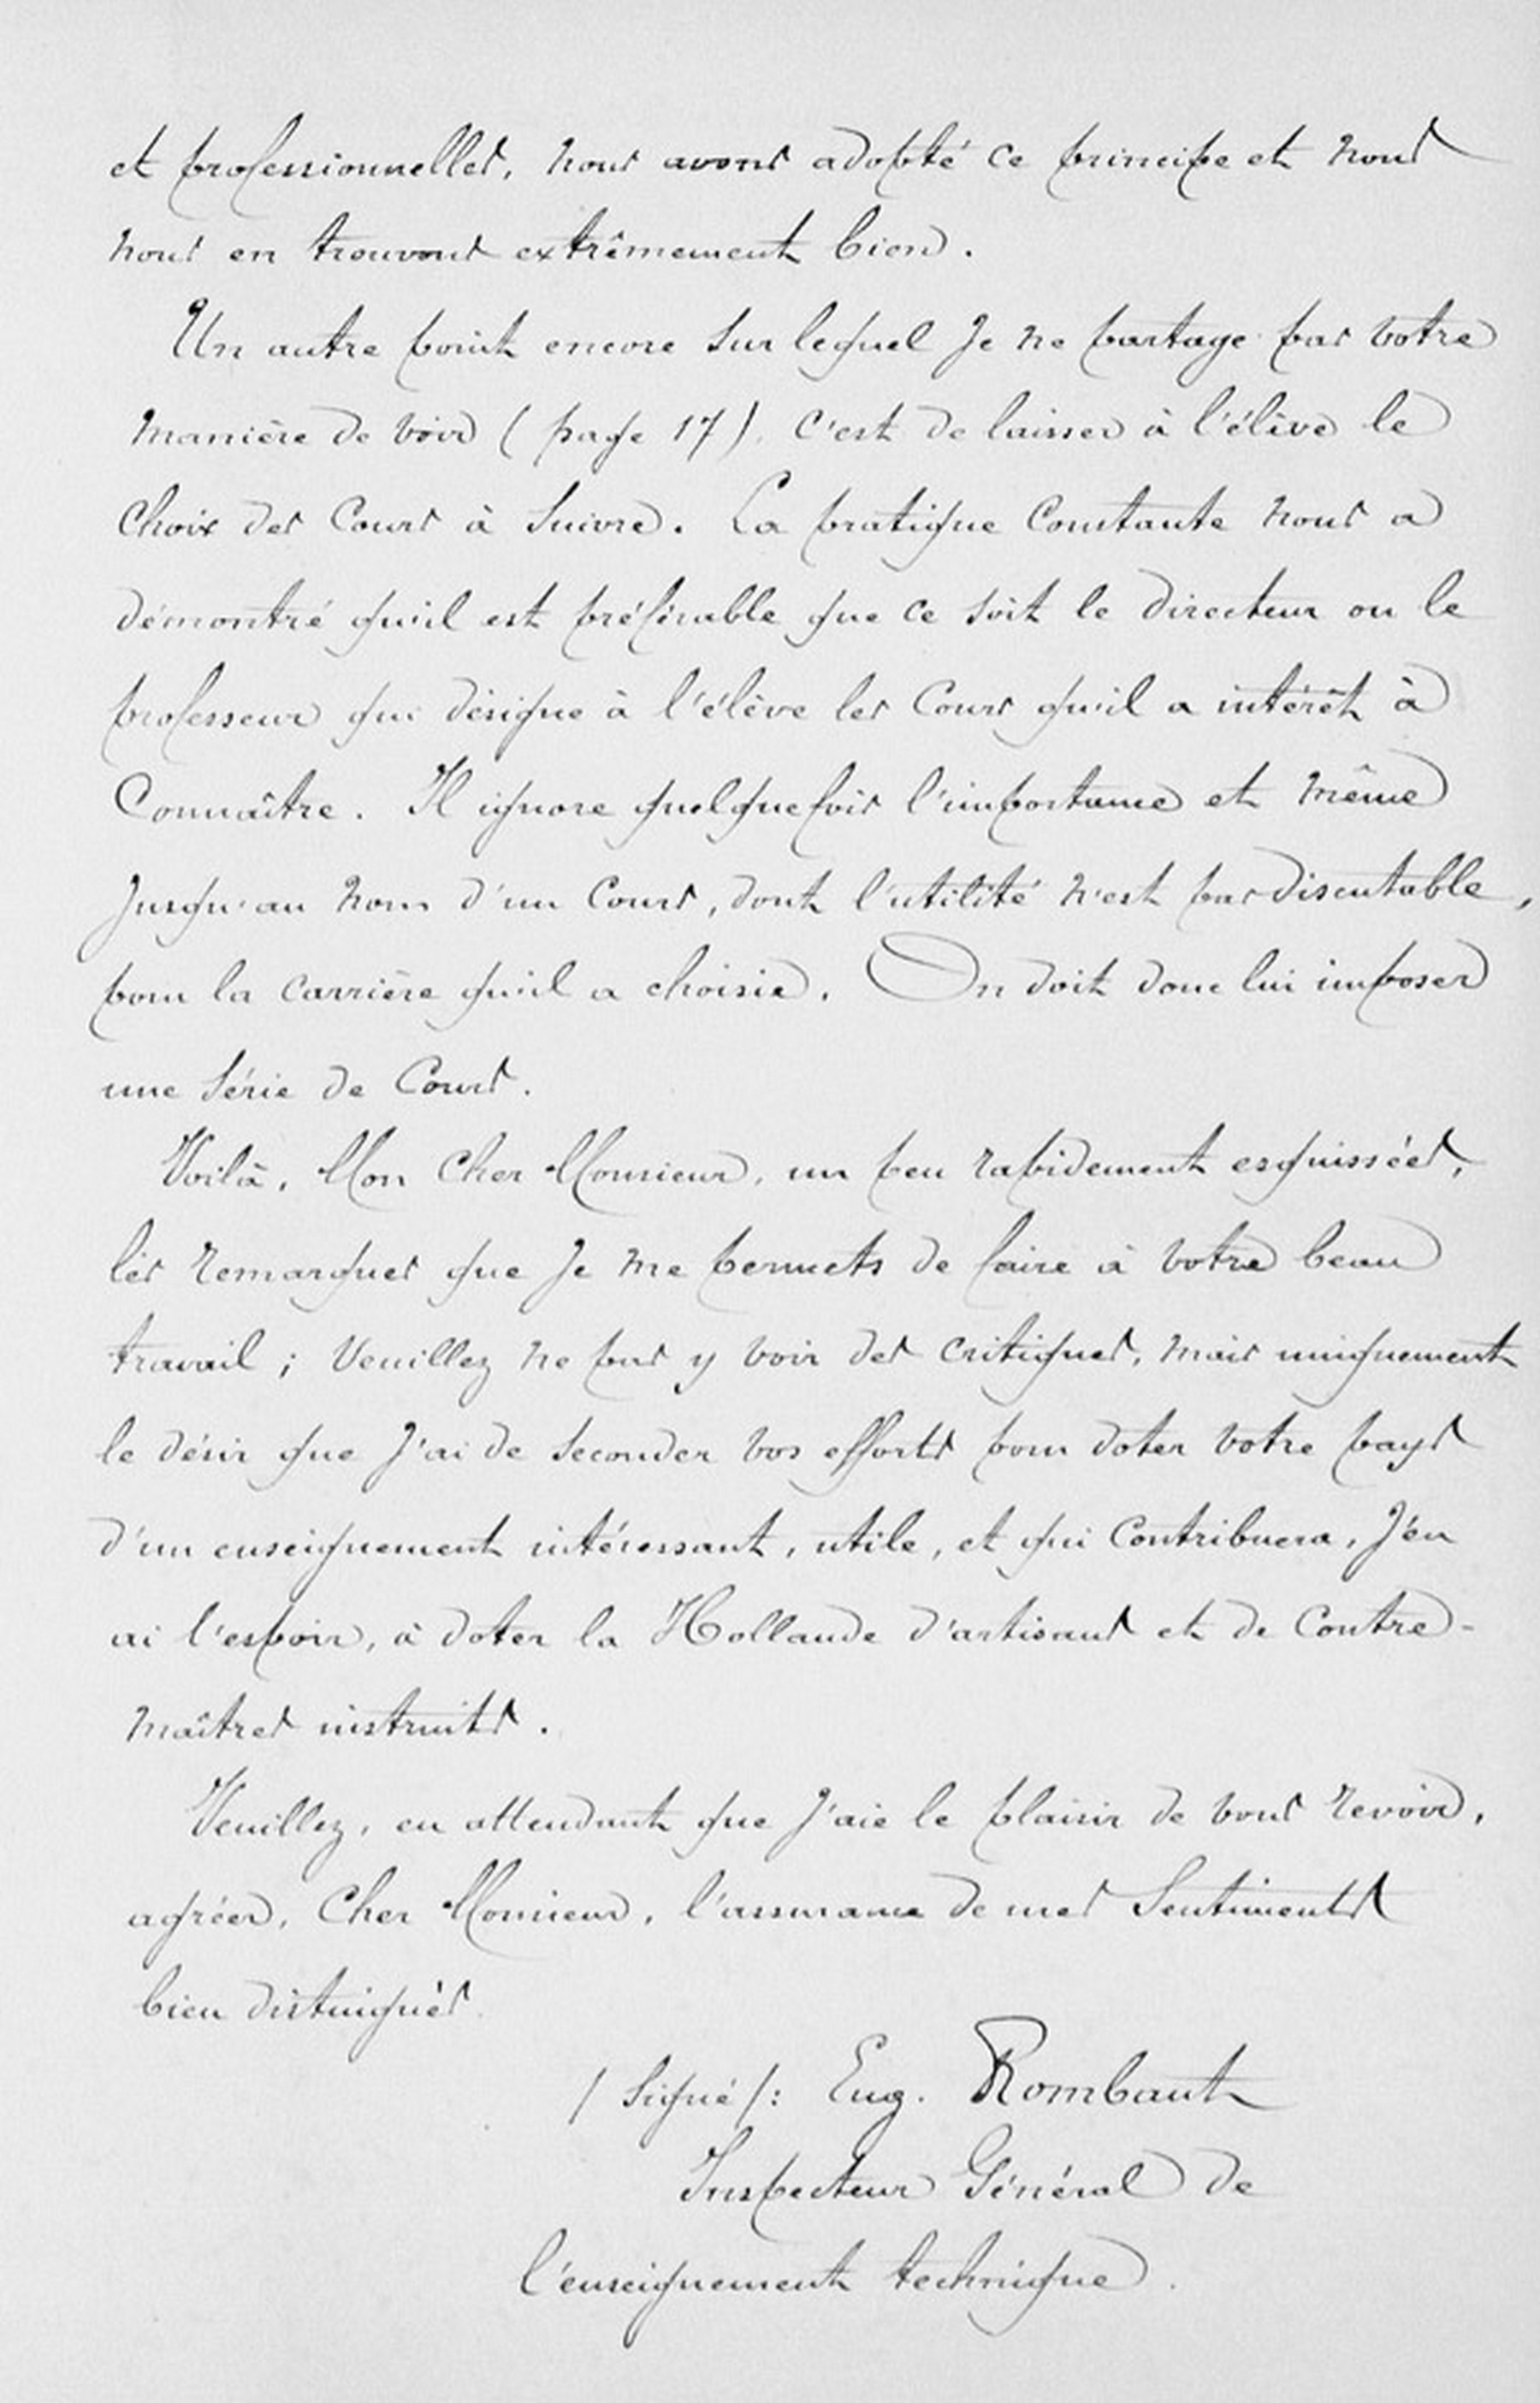 et professionnelles, nous avons adopté ce principe et nous
nous en trouvons extrêmement bien.
Un autre point encore sur lequel je ne partage pas votre
manière de voir (page 17), c'est de laisser à l'élève le
choix des cours à suivre. La pratique constante nous a
démontré qu'il est préférable que ce soit le directeur ou le
professeur qui désigne à l'élève les cours qu'il a intérêt à
connaître. Il ignore quelquefois l'importance et même
jusqu'au nom d'un cours, dont l'utilité n'est pas discutable,
pour la carrière qu'il a choisie. On doit donc lui imposer
une série de cours.
Voilà, Mon Cher Monsieur, un peu rapidement esquissées,
les remarques que je me permets de faire à votre beau
travail ; veuillez ne pas y voir des critiques, mais uniquement
le désir que j'ai de seconder vos efforts pour doter votre pays
d'un enseignement intéressant, utile, et qui contribuera, j'en
ai l'espoir, à doter la Hollande d'artisans et de contre-
maîtres instruits.
Veuillez, en attendant que j'aie le plaisir de vous revoir,
agréer, Cher Monsieur, l'assurance de mes sentiments
bien distingués
/ signé /: Eug. Rombaut
Inspecteur Général de
l'enseignement technique.